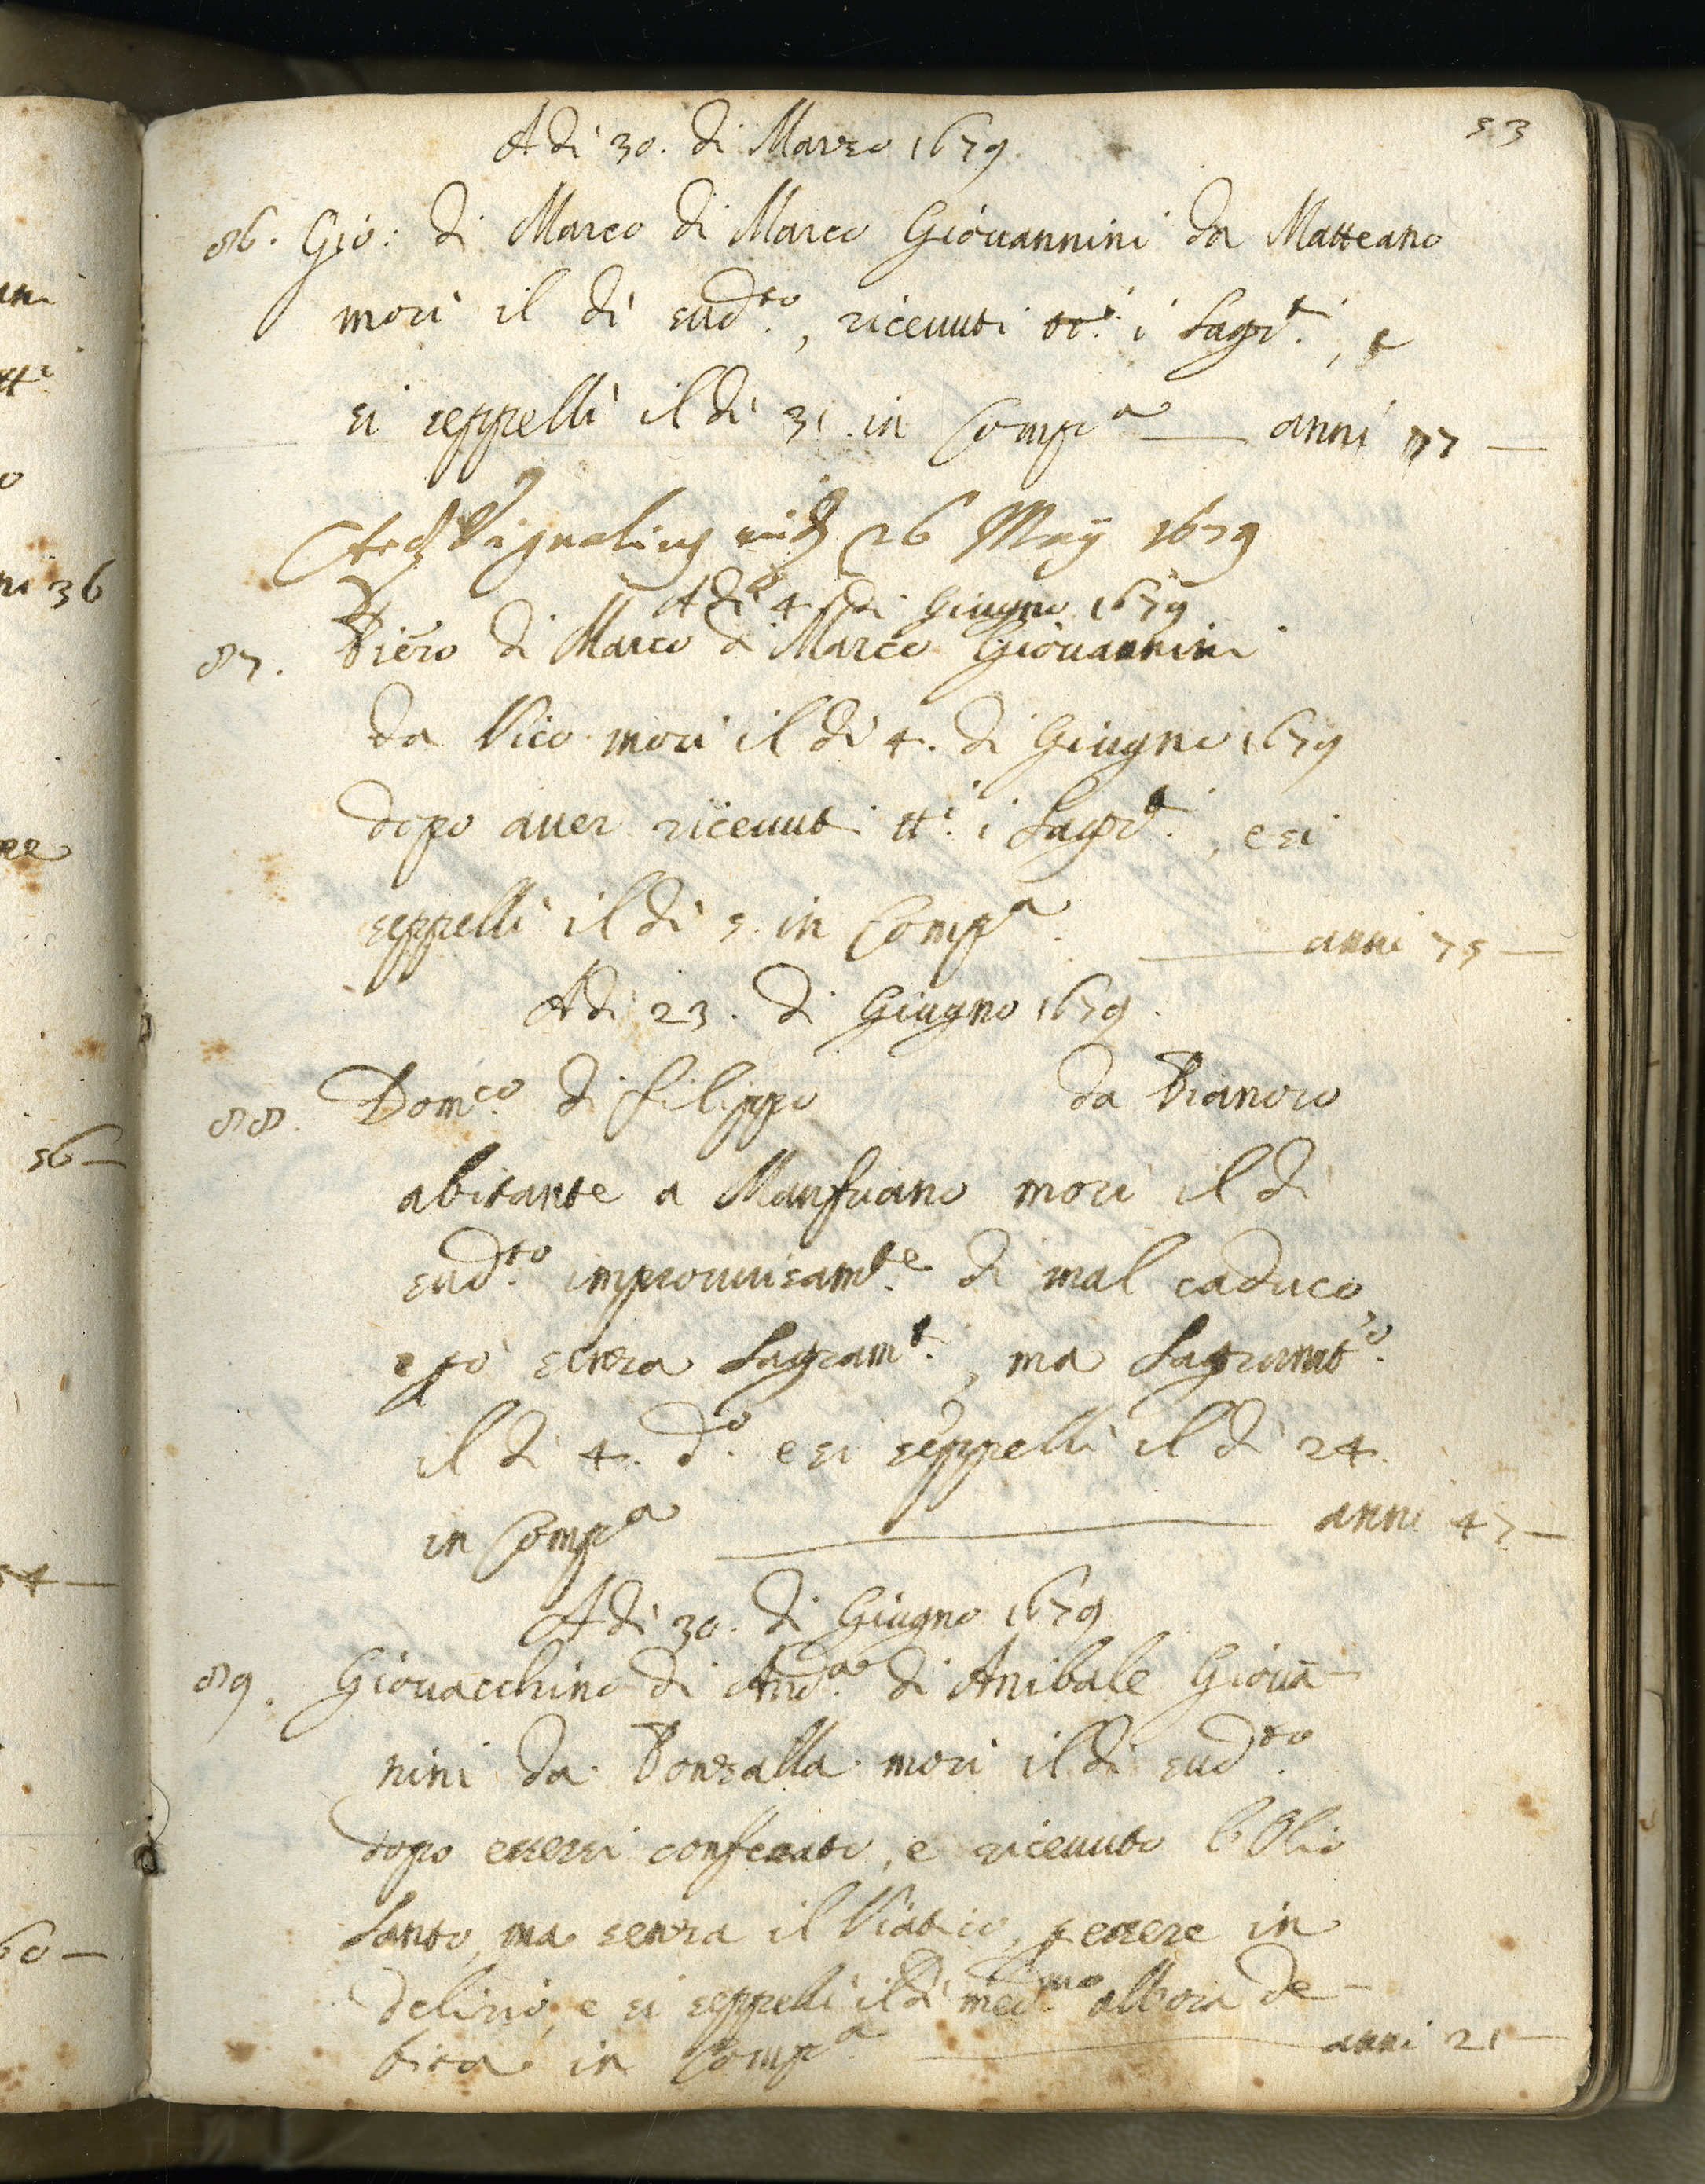 53
Adì 30. di Marzo 1679.
86. Gio: di Marco di Marco Giovannini da Matteano
morì il dì sud.to, ricevuti tt.i i Sagr.ti, e
si seppellì il dì 31. in Comp.a — anni 77 —
26 Maij 1679
Adì 4. di Giugno 1679
87. Piero di Marco di Marco Giovannini
da Vico morì il dì 4. di Giugno 1679
dopo aver ricevuti tt.i i Sagr.ti, e si
seppellì il dì 5. in Comp.a — anni 75 —
Adì 23. di Giugno 1679.
88. Dom.co di Filippo da Pianoro
abitante a Manfriano morì il dì
sud.to improvvisam.te di mal caduco,
e però senza Sagram.ti, ma
il dì 4. d.o e si seppellì il dì 24.
in Comp.a — anni 47 —
Adì 30. di Giugno 1679
89. Giovacchino di And.a di Anibale Giovā-
nini da Bonzalla morì il dì sud.to
dopo essersi confessato, e ricevuto l'Olio
Santo, ma senza il Viatico, p essere in
delirio, e si seppellì il dì med.mo all'ora de-
bita in Comp.a — anni 21 —
ni 36
56 —
54 —
60 —